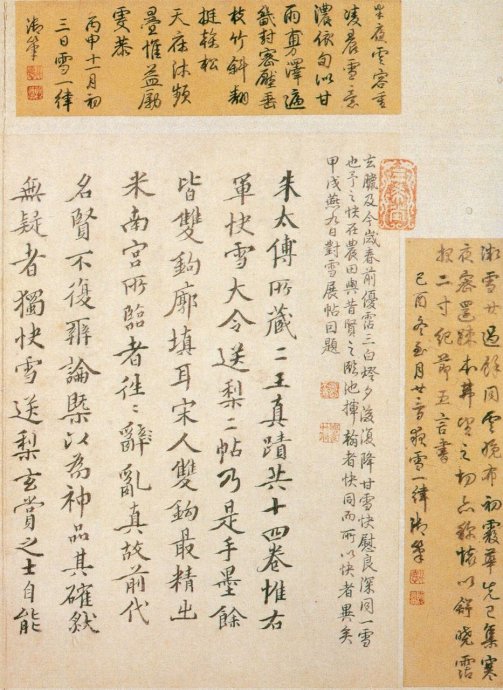 同雲晚布初霰華先已集寒
夜密還疎望之切亦稱懷以舒曉霑
報二寸紀節五言書
己酉冬至月廿雪一律御筆
夜雲容重
凌晨雪意
濃依旬沾甘
雨剪澤遍
畿封密壓垂
枝竹斜翻
挺榦松
天庥沐頻
疊惟益勵
虔恭
丙申十一月初
三日雪一律
御筆
臘及今歲春前優霑三白燈夕後復降甘雪快慰良深同一雪
也予之快在農田與昔賢之臨池揮翰者快同而所以快者異矣
甲戌燕九日對雪展帖因題
朱太傅所藏二王真蹟共十四卷惟右
軍快雪大令送梨二帖乃是手墨餘
皆雙鉤廓填耳宋人雙鉤最精出
米南宮所臨者往〻辭亂真故前代
名賢不復辨論槩以為神品其確然
無疑者獨快雪送梨玄賞之士自能